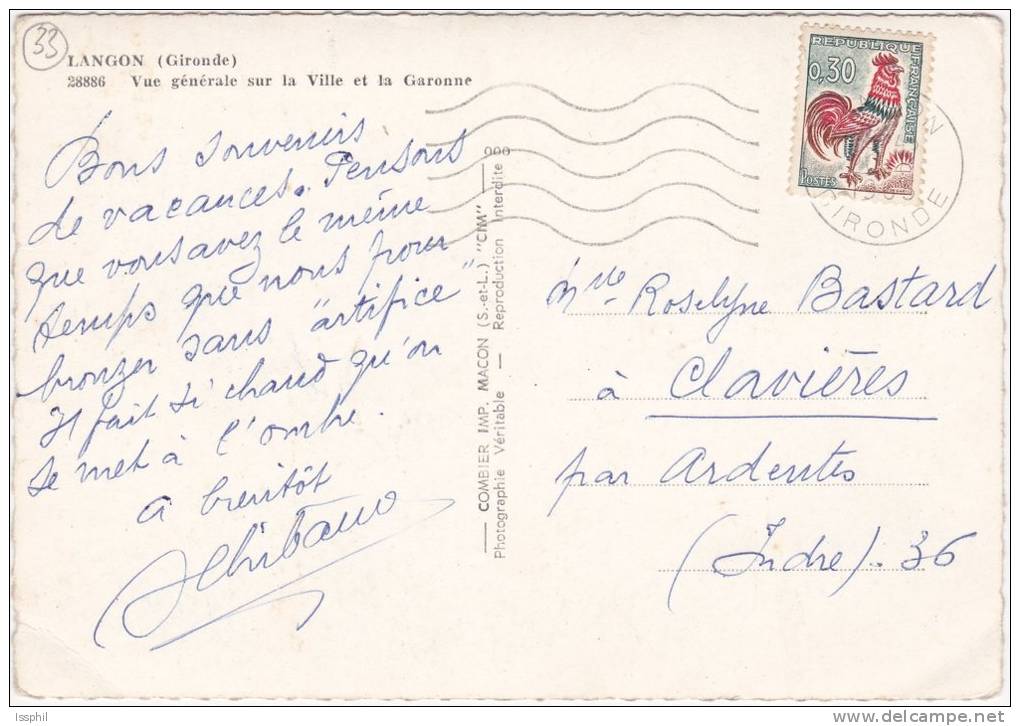 33
LANGON (Gironde)
28886 Vue générale sur la Ville et la Garonne
Bons souvenirs
de vacances. Pensons
que vous avez le même
temps que nous pour
bronzer sans "artifice"
Il fait si chaud qu'on
se met à l'ombre.
A bientôt
COMBIER IMP. MACON (S.-et-L.) "CIM"
Photographie Véritable — Reproduction Interdite
RÉPUBLIQUE FRANÇAISE
0,30
POSTES
GIRONDE
Mlle Roselyne Bastard
à Clavières
par Ardentes
(Indre). 36
Issphil
delcampe.net